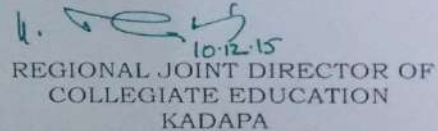 10.12.15
REGIONAL JOINT DIRECTOR OF
COLLEGIATE EDUCATION
KADAPA